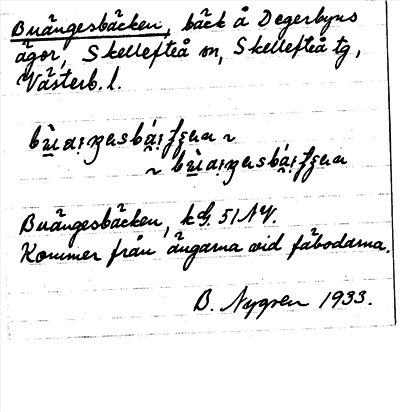 Buängesbäcken, bäck å Degerbyns
ägor, Skellefteå sn, Skellefteå tg,
Västerb. l.
~
~
Buängesbäcken, kG. 51 NV.
Kommer från ängarna vid fäbodarna.
B. Nygren 1933.